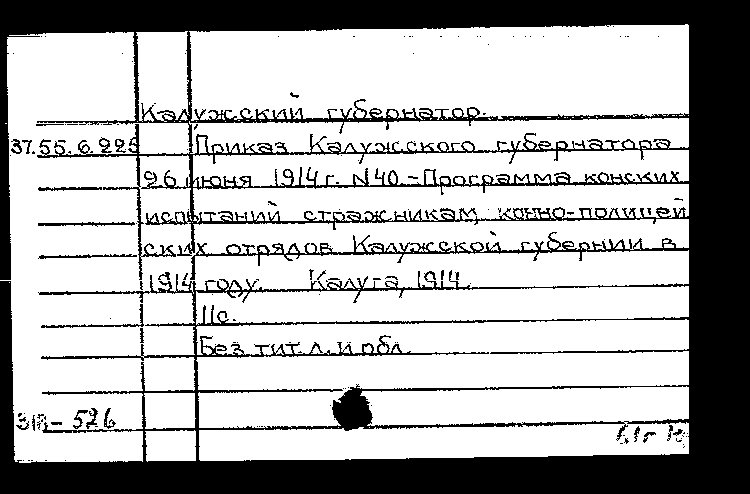 Калужский губернатор.
37.55.6.225 Приказ Калужского губернатора
26 июня 1914 г. N40.-Программа конских
испытаний стражникам, конно-полицей
ских отрядов Калужской губернии в
1914 году. Калуга, 1914.
11с.
Без тит. л. и обл.
526